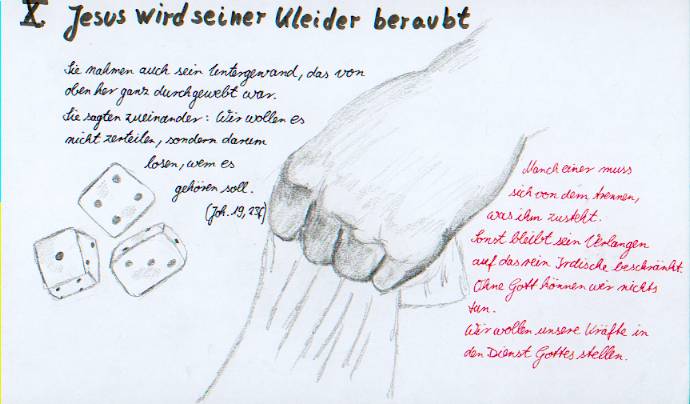 X Jesus wird seiner Kleider beraubt
Sie nahmen auch sein Untergewand, das von
oben her ganz durchgewebt war.
Sie sagten zueinander: Wir wollen es
nicht zerteilen, sondern darum
losen, wem es
gehören soll.
(Joh. 19, 23f)
Manch einer muss
sich von dem trennen,
was ihm zusteht.
Sonst bleibt sein Verlangen
auf das rein Irdische beschränkt.
Ohne Gott können wir nichts
tun.
Wir wollen unsere Kräfte in
den Dienst Gottes stellen.